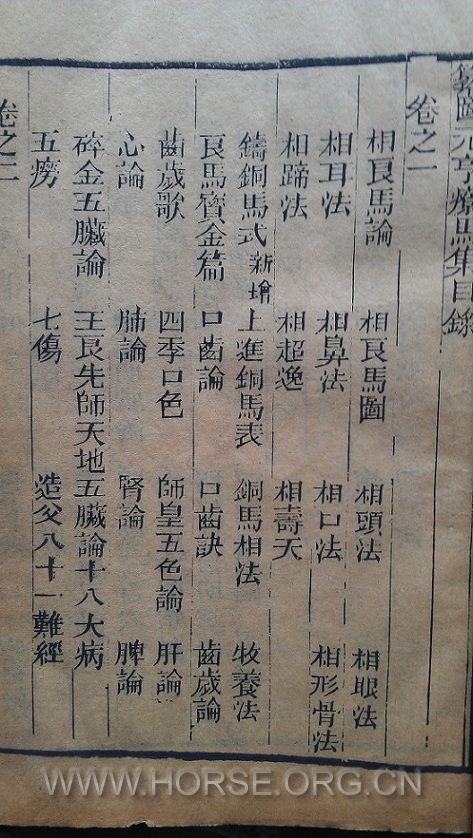 纂圖元亨療馬集目錄
卷之一
相良馬論 相良馬圖 相頭法 相眼法
相耳法 相鼻法 相口法 相形骨法
相蹄法 相超逸 相壽夭
鑄銅馬式新增 上進銅馬表 銅馬相法 牧養法
良馬寶金篇 口齒論 口齒訣 齒歲論
齒歲歌 四季口色 師皇五色論 肝論
心論 肺論 腎論 脾論
碎金五臟論 王良先師天地五臟論 十八大病
五癆 七傷 造父八十一難經
卷之二
WWW.HORSE.ORG.CN